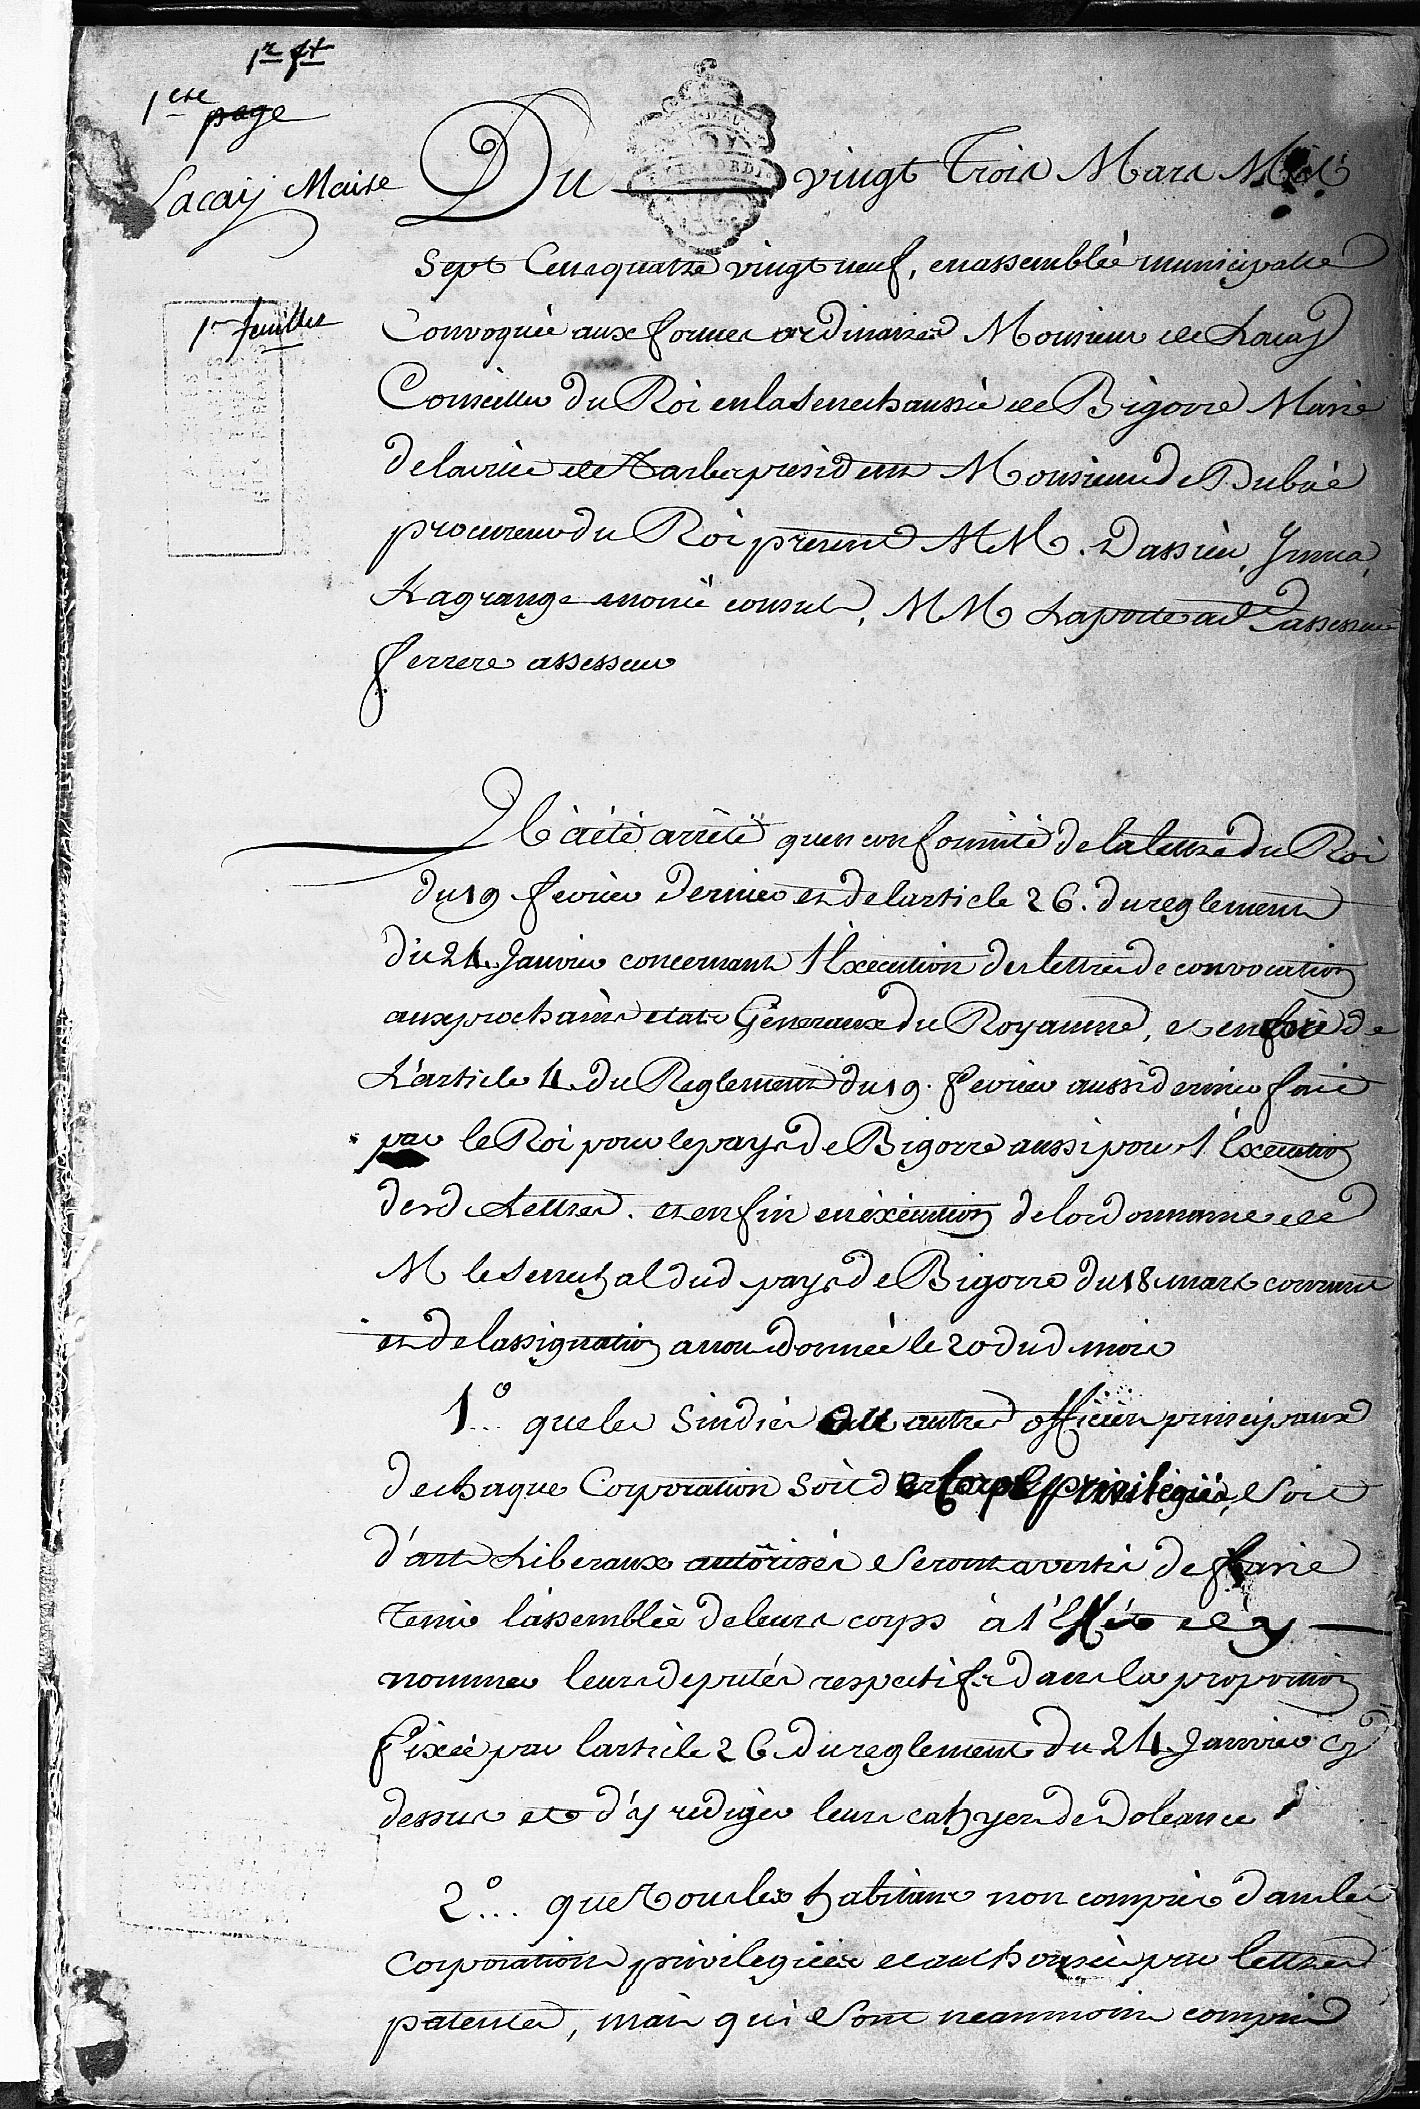 1r ft
1ere page
Lacay Maire
Du vingt Trois Mars Mil
Sept Cens quatre vingt neuf, en assemblée municipalle
1er feuillet
Convoquée aux formes ordinaires Monsieur de Lacay
Conseiller du Roi en la Senechaussée de Bigorre Maire
de la ville de Tarbes president Monsieur de
procureur du Roi present MM. Dassieu,
Lagrange consuls, MM Laporte assesseur
ferrere assesseur
Il à été arrêté qu'en conformité de la lettre du Roi
du 19 fevrier dernier et de l'article 26. du reglement
du 24. Janvier concernant l'Execution des lettres de convocation
aux prochains etats Géneraux du Royaume, et en de
L'article 4 du Reglement du 19. fevrier aussi dernier fait
par le Roi pour le pays de Bigorre aussi pour l'Execution
desd Lettres. et enfin en éxécution de lordonnance de
M le Senechal dud pays de Bigorre du 18 mars courant
et de lassignation a nous donnée le 20 dud mois
1°.. que les Sindics ou autres officiers principaux
de chaque Corporation soit de Corps privilegiés, soit
d'arts Liberaux autôrisés seront avertis de faire
tenir l'assemblée de leurs corps à l'Effét d'y
nommer leurs deputés respectifs dans la proportion
fixée par larticle 26 du reglement du 24 Janvier cy
dessus et d'y rediger leurs cahyers de doléances
2°... que Tous les habitans non compris dans les
corporations privilegiées et authorisées par lettres
patentes, mais qui sont neanmoins compris